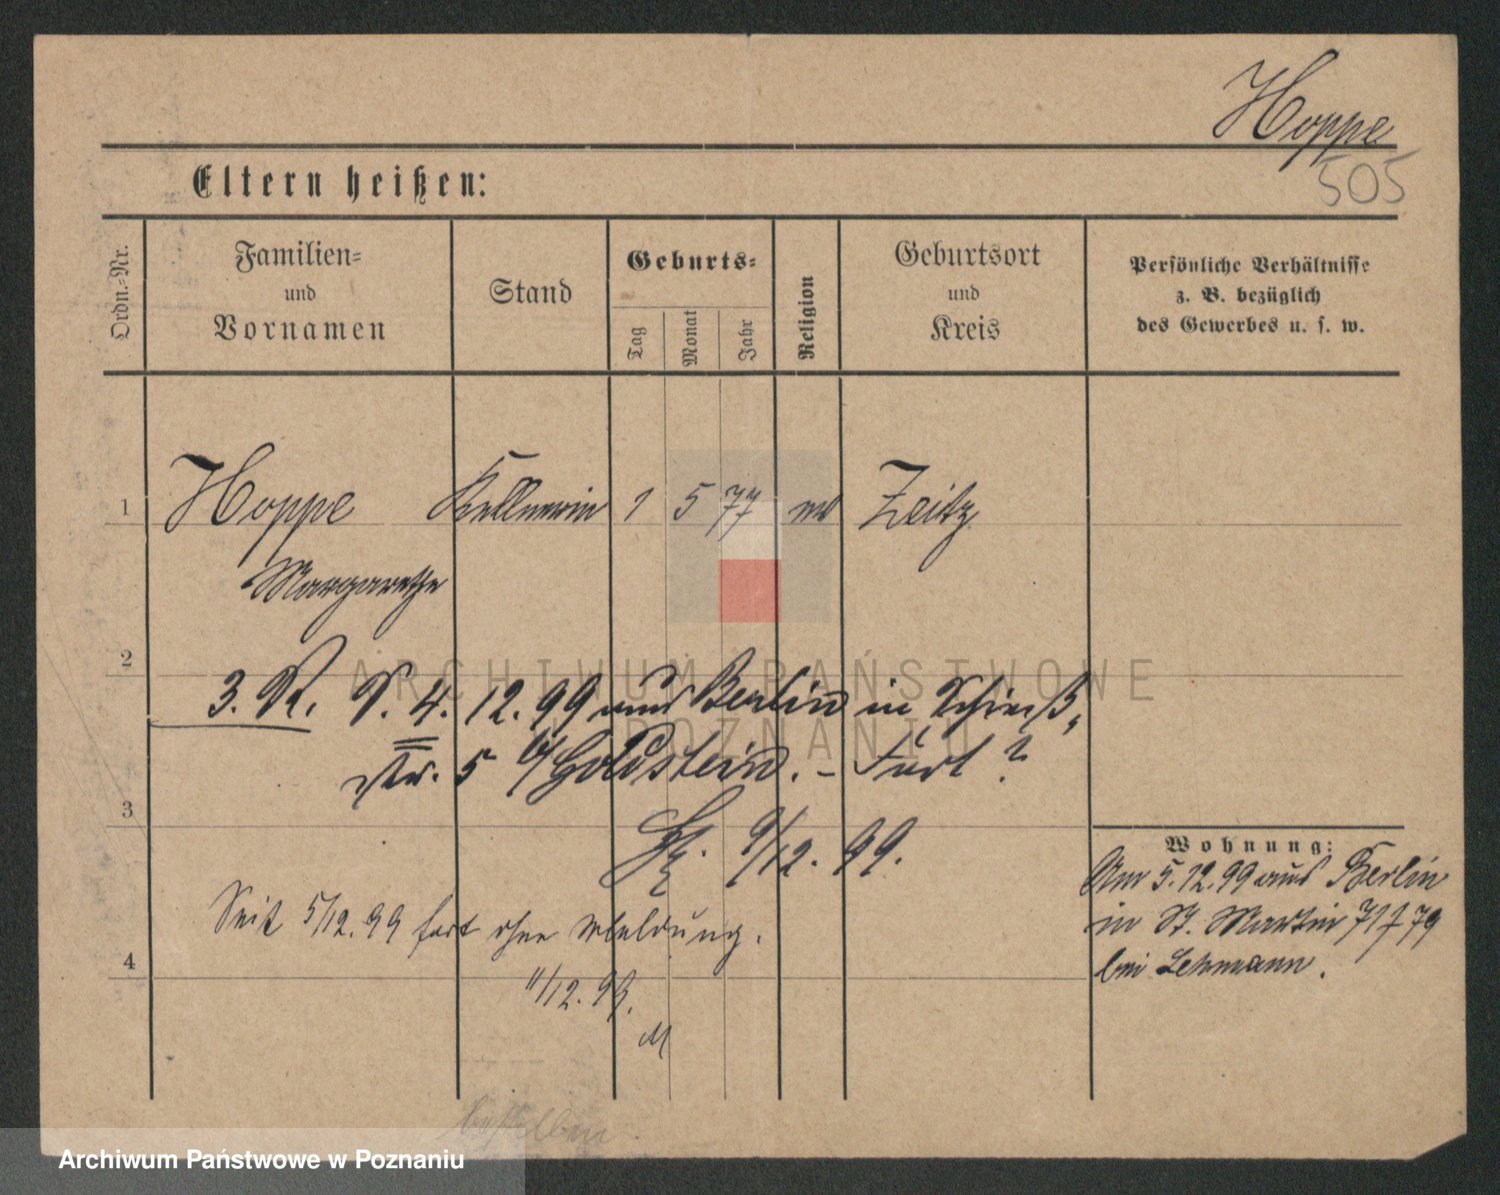 Hoppe
505
Eltern heißen:
Ordn.-Nr.
Familien-
und
Vornamen
Stand
Geburts-
Tag
Monat
Jahr
Religion
Geburtsort
und
Kreis
Persönliche Verhältnisse
z. B. bezüglich
des Gewerbes u. s. w.
1 Hoppe Kellnerin 1 5 77 Zeitz
Margarethe
2
3. R. 4. 12. 99 aus Berlin in Schieß-
str. 5 b/ Goldstein. - Fort?
3
9/12. 99.
Seit 5/12. 99 fort ohne Meldung.
4
11/12. 99.
M
Wohnung:
Am 5. 12. 99 aus Berlin
in St. Martin 79
bei Lehmann.
ARCHIWUM PAŃSTWOWE
W POZNANIU
Archiwum Państwowe w Poznaniu